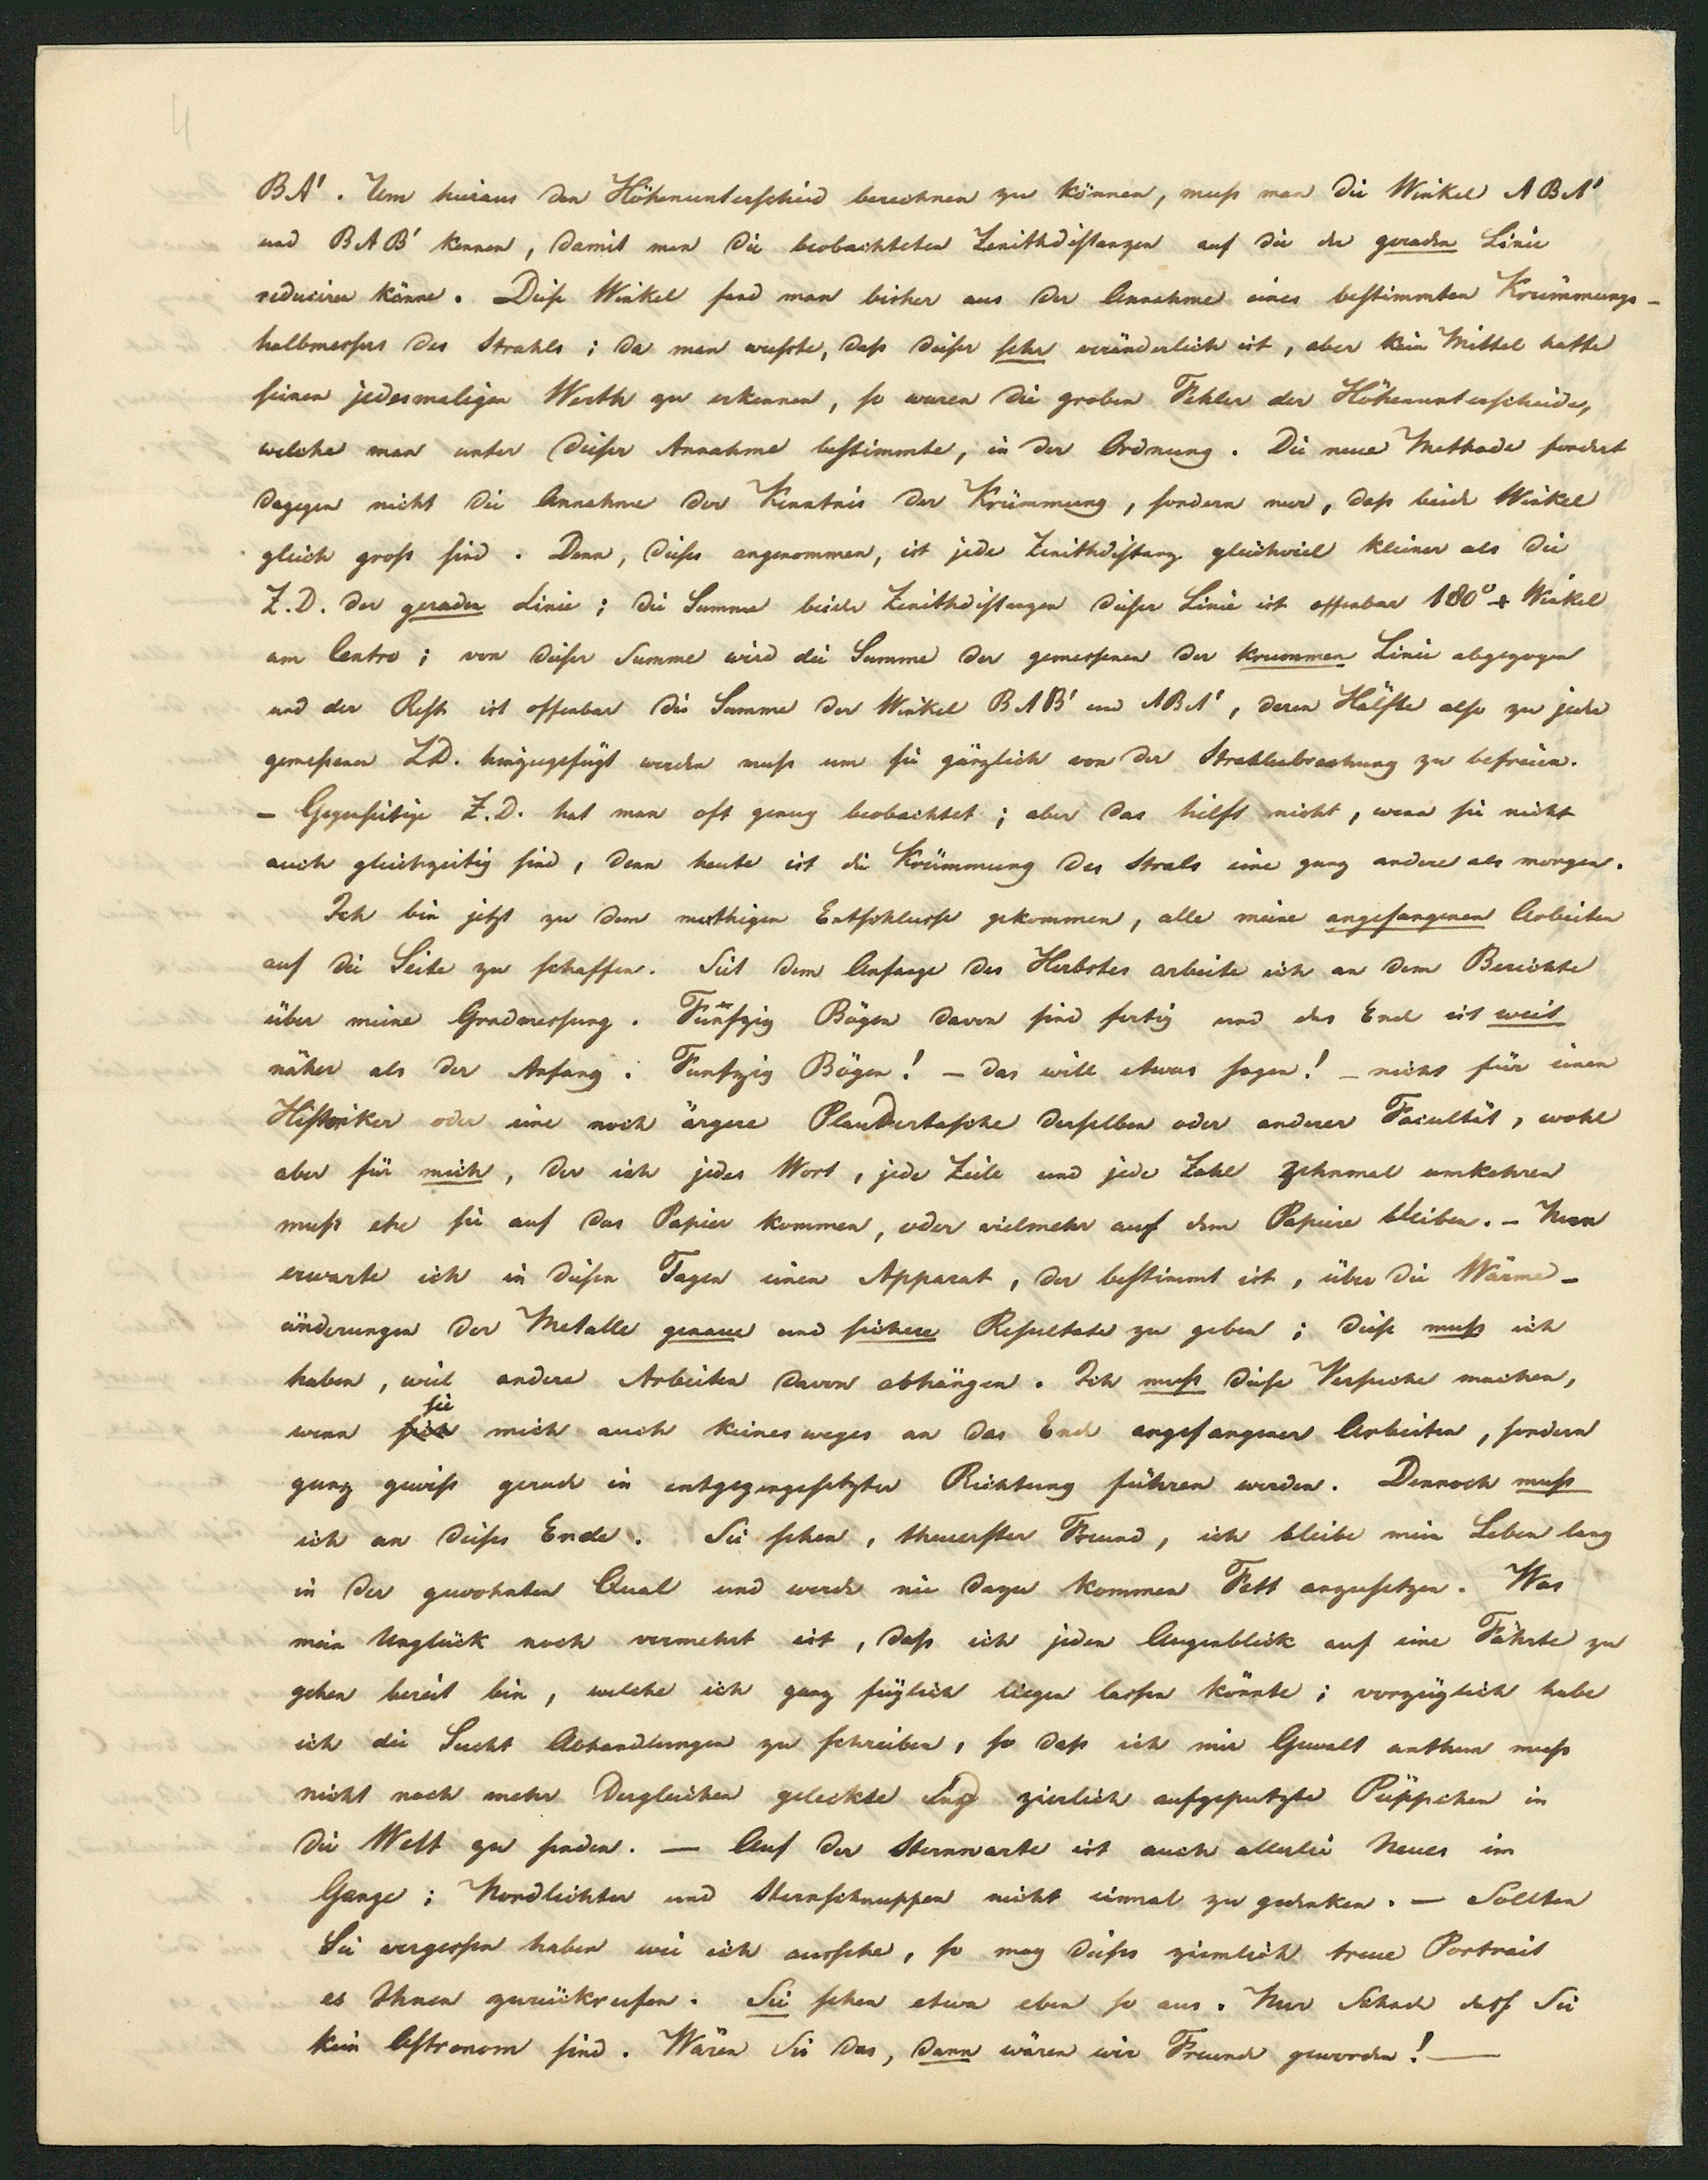 4
BA'. Um hieraus den Höhenunterschied berechnen zu können, muß man die Winkel ABA'
und BAB' kennen, damit man die beobachteten Zenithdistanzen auf die der geraden Linie
reduciren könne. Diese Winkel fand man bisher aus der Annahme eines bestimmten Krümmungs-
halbmessers des Strahls; da man wußte, daß dieser sehr veränderlich ist, aber kein Mittel hatte
seinen jedesmaligen Werth zu erkennen, so waren die groben Fehler der Höhenunterschiede,
welche man unter dieser Annahme bestimmte, in der Ordnung. Die neue Methode fordert
dagegen nicht die Annahme der Kenntnis der Krümmung, sondern nur, daß beide Winkel
gleich groß sind. Denn, dieses angenommen, ist jede Zenithdistanz gleichviel kleiner als die
Z.D. der geraden Linie; die Summe beider Zenithdistanzen dieser Linie ist offenbar 180° + Winkel
am Centro; von dieser Summe wird die Summe der gemessenen der krummen Linie abgezogen
und der Rest ist offenbar die Summe der Winkel BAB' und ABA', deren Hälfte also zu jeder
gemeßenen ZD. hinzugefügt werden muß um sie gänzlich von der Strahlenbrechung zu befreien.
– Gegenseitige Z.D. hat man oft genug beobachtet; aber das hilft nicht, wenn sie nicht
auch gleichzeitig sind, denn heute ist die Krümmung des Strals eine ganz andere als morgen.
Ich bin jetzt zu dem muthigen Entschlusse gekommen, alle meine angefangenen Arbeiten
auf die Seite zu schaffen. Seit dem Anfange des Herbstes arbeite ich an dem Berichte
über meine Gradmessung. Fünfzig Bögen davon sind fertig und das Ende ist weit
näher als der Anfang. Funfzig Bögen! – das will etwas sagen! – nicht für einen
Historiker oder eine noch ärgere Plaudertasche derselben oder anderer Facultät, wohl
aber für mich, der ich jedes Wort, jede Zeile und jede Zahl zehnmal umkehren
muß ehe sie auf das Papier kommen, oder vielmehr auf dem Papiere bleiben. – Nun
erwarte ich in diesen Tagen einen Apparat, der bestimmt ist, über die Wärme-
änderungen der Metalle genaue und sichere Resultate zu geben; diese muß ich
haben, weil andere Arbeiten davon abhängen. Ich muß diese Versuche machen,
wenn sie mich auch keinesweges an das Ende angefangener Arbeiten, sondern
ganz gewiß gerade in entgegengesetzter Richtung führen werden. Dennoch muß
ich an dieses Ende. Sie sehen, theuerster Freund, ich bleibe mein Leben lang
in der gewohnten Qual und werde nie dazu kommen Fett anzusetzen. Was
mein Unglück noch vermehrt ist, daß ich jeden Augenblick auf eine Fährte zu
gehen bereit bin, welche ich ganz füglich liegen lassen könnte; vorzüglich habe
ich die Sucht Abhandlungen zu schreiben, so daß ich mir Gewalt anthun muß
nicht noch mehr dergleichen geleckte und zierlich aufgeputzte Püppchen in
die Welt zu senden. – Auf der Sternwarte ist auch allerlei Neues im
Gange; Nordlichter und Sternschnuppen nicht einmal zu gedenken. – Sollten
Sie vergessen haben wie ich aussehe, so mag dieses ziemlich treue Portrait
es Ihnen zurückrufen. Sie sehen etwa eben so aus. Nur Schade daß Sie
kein Astronom sind. Wären Sie das, dann wären wir Freunde geworden! –